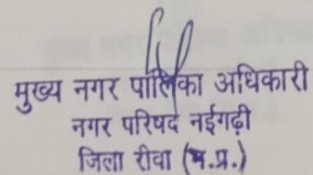 मुख्य नगर पालिका अधिकारी
नगर परिषद नईगढ़ी
जिला रीवा (म.प्र.)